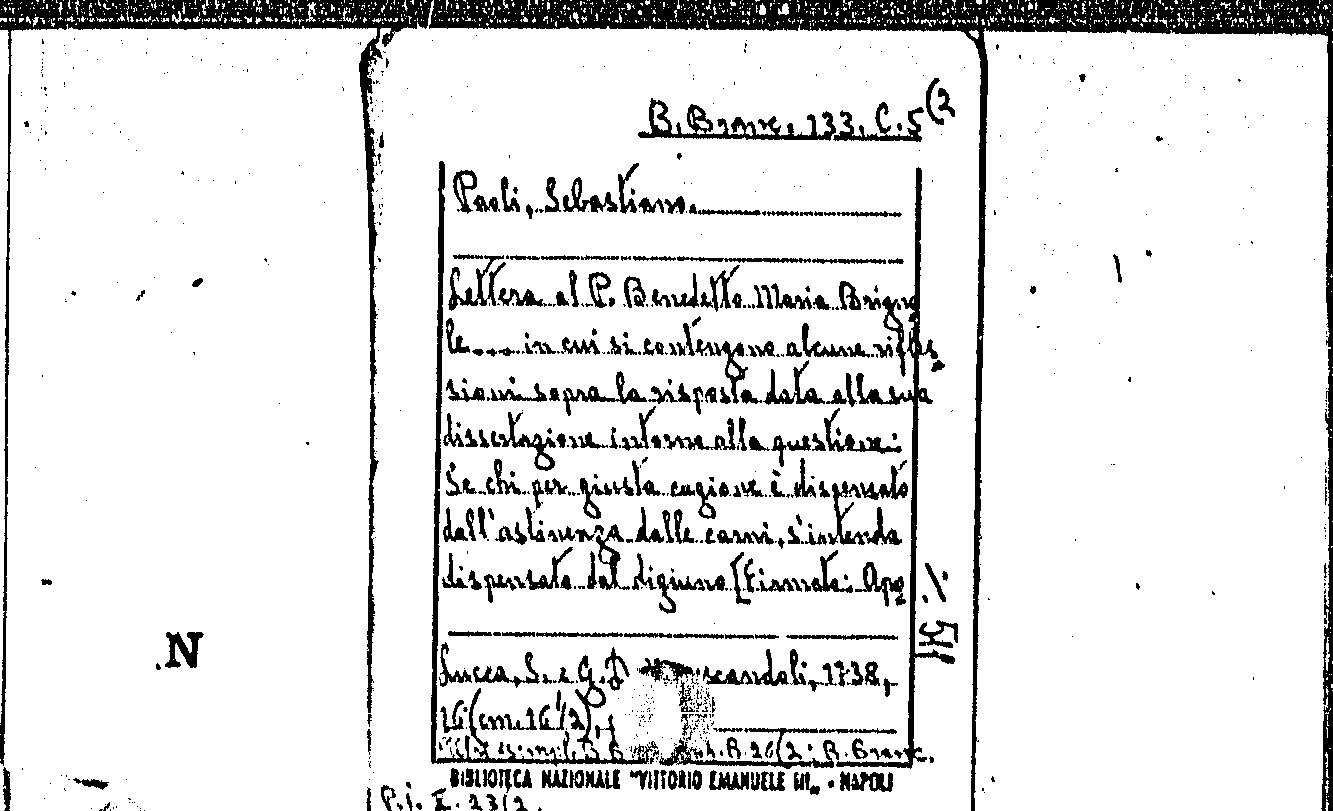 B. Branc. 133. C. 5(2
Paoli, Sebastiano.
Lettera al P. Benedetto Maria Brigno
le.... in cui si contengono alcune rifles
sioni sopra la risposta data alla sua
dissertazione intorno alla questione:
Se chi per giusta cagione è dispensato
dall'astinenza dalle carni, s'intenda
dispensato dal digiuno [Firmato: Apo
./. 511
Lucca, S. e G. D. 1738,
16 (cm. 16 1/2),
B. 26(2; B. Branc.
BIBLIOTECA NAZIONALE "VITTORIO EMANUELE III„ - NAPOLI
P.i. X. 23(2.
N